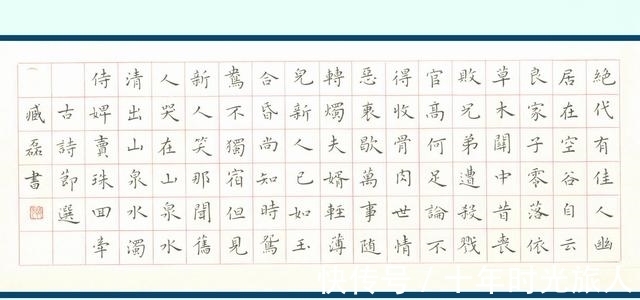 絶代有佳人幽
居在空谷自云
良家子零落依
草木關中昔喪
敗兄弟遭殺戮
官高何足論不
得收骨肉世情
惡衰歇萬事随
轉燭夫婿輕薄
兒新人已如玉
合昏尚知時鴛
鴦不獨宿但見
新人笑那聞舊
人哭在山泉水
清出山泉水濁
侍婢賣珠回牽
古詩節選
臧磊書